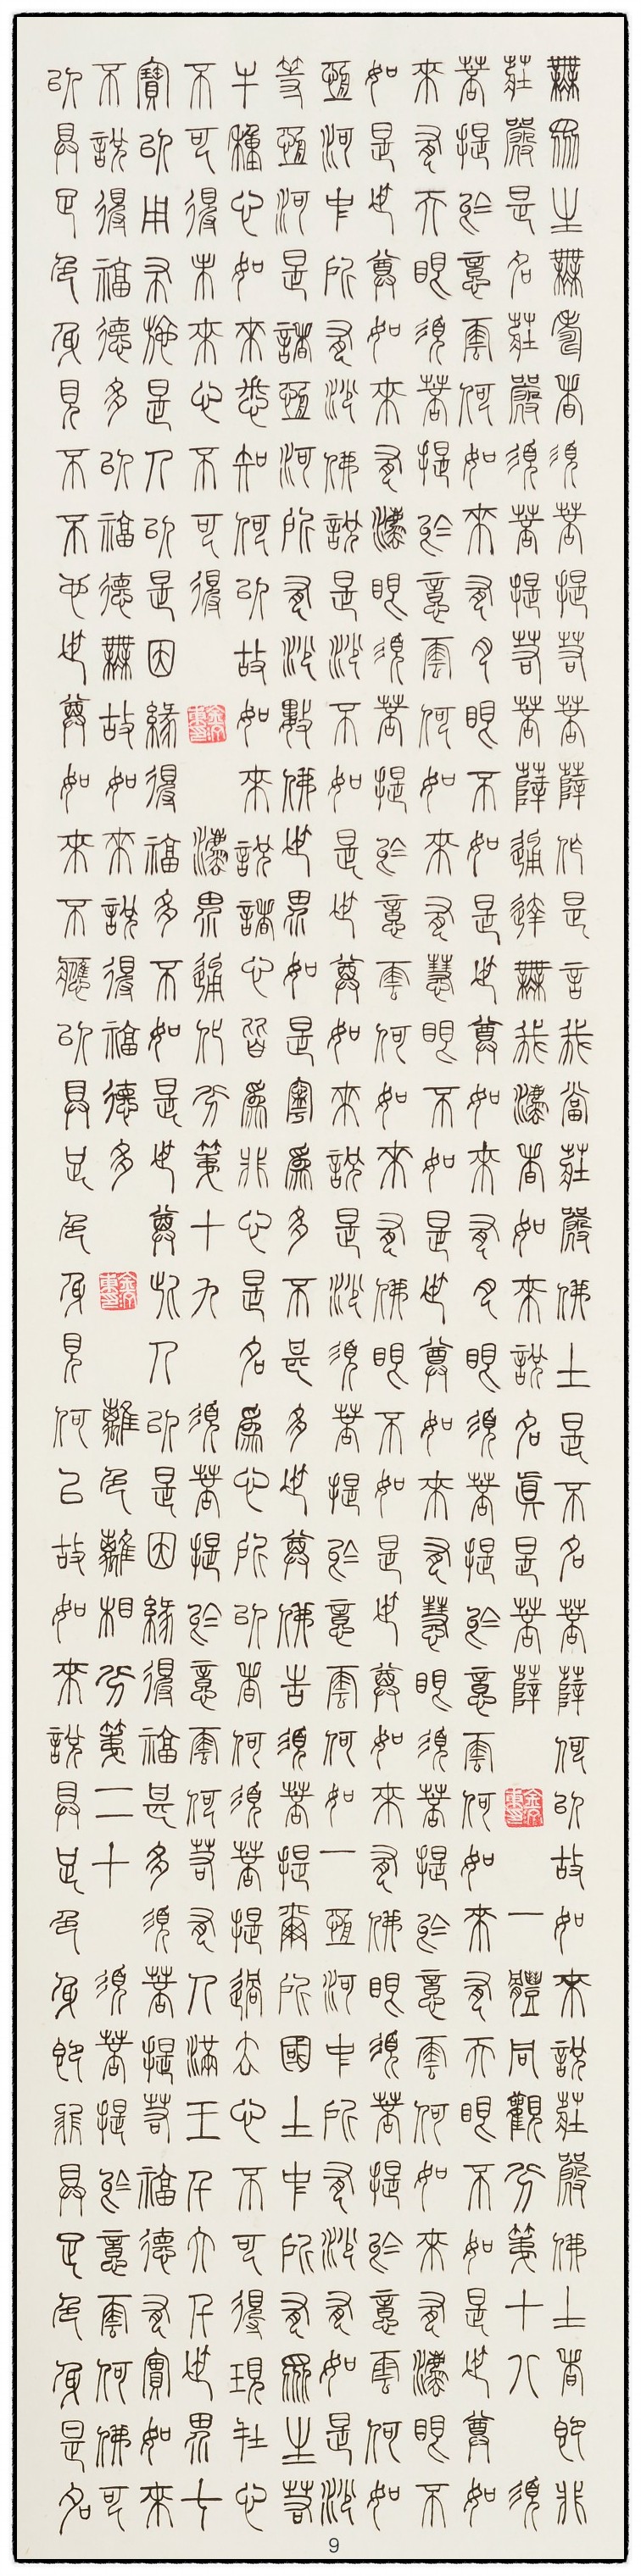 無眾生無壽者須菩提若菩薩作是言我當莊嚴佛土是不名菩薩何以故如來說莊嚴佛土者即非
莊嚴是名莊嚴須菩提若菩薩通達無我法者如來說名真是菩薩 一體同觀分第十八 須
菩提於意雲何如來有肉眼不如是世尊如來有肉眼須菩提於意雲何如來有天眼不如是世尊如
來有天眼須菩提於意雲何如來有慧眼不如是世尊如來有慧眼須菩提於意雲何如來有法眼不
如是世尊如來有法眼須菩提於意雲何如來有佛眼不如是世尊如來有佛眼須菩提於意雲何如
恆河中所有沙佛說是沙不如是世尊如來說是沙須菩提於意雲何如一恆河中所有沙有如是沙
等恆河是諸恆河所有沙數佛世界如是寧為多不甚多世尊佛告須菩提爾所國土中所有眾生若
干種心如來悉知何以故如來說諸心皆為非心是名為心所以者何須菩提過去心不可得現在心
不可得未來心不可得 法界通化分第十九 須菩提於意雲何若有人滿三千大千世界七
寶以用布施是人以是因緣得福多不如是世尊此人以是因緣得福甚多須菩提若福德有實如來
不說得福德多以福德無故如來說得福德多 離色離相分第二十 須菩提於意雲何佛可
以具足色身見不不也世尊如來不應以具足色身見何以故如來說具足色身即非具足色身是名
9